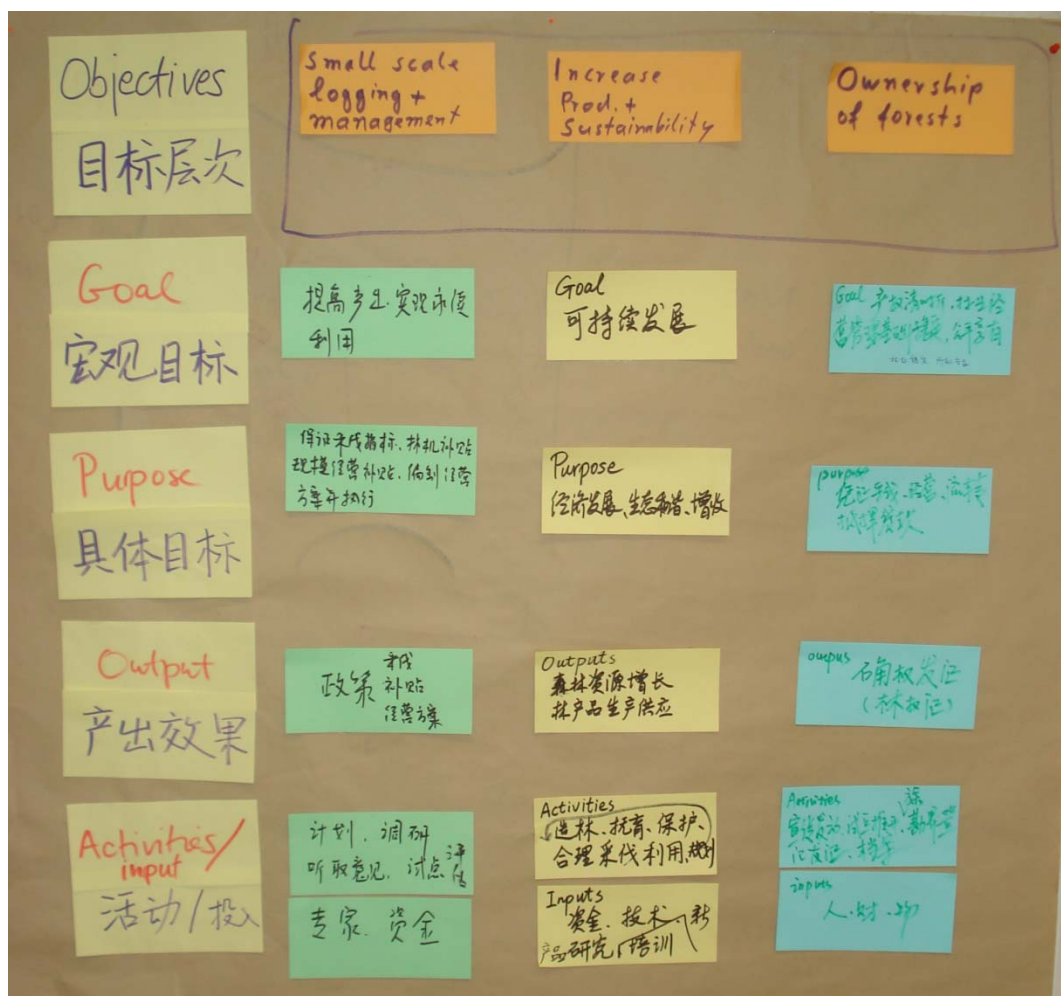 Objectives
目标层次
Small scale
logging +
management
Increase
Prod. +
Sustainability
Ownership
of forests
Goal
宏观目标
提高产出.实现永续
利用
Goal
可持续发展
Goal
营管
Purpose
具体目标
保证采伐指标、林机补贴
规模经营补贴、编制经营
方案并执行
Purpose
经济发展、生态和谐、增收
purpose
Output
产出效果
政策
采伐
补贴
经营方案
Outputs
森林资源增长
林产品生产供应
oupus
确权发证
(林权证)
Activities/
input
活动/投入
计划、调研
听取意见、试点
评估
专家、资金
Activities
造林、抚育、保护、
合理采伐利用、规划
Inputs
资金、技术
新
产品研究、培训
Activities
inputs
人.财.物